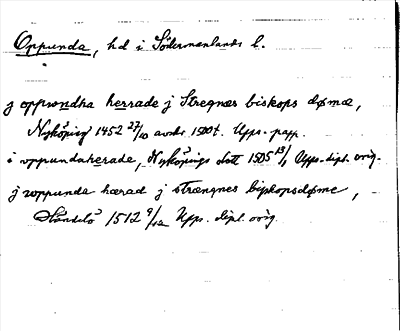 Oppunda, hd i Södermanlands l.
j opprondha herrade j Stregnæs biskops dømæ,
Nykøping 1452 27/10 avskr. 1504. Upps. papp.
i oppundaherade, Nykøpings slott 1505 13/1 Upps. dipl. orig.
j woppunda hærad j strængnes biskopsdøme,
1512 9/12 Upps. dipl. orig.